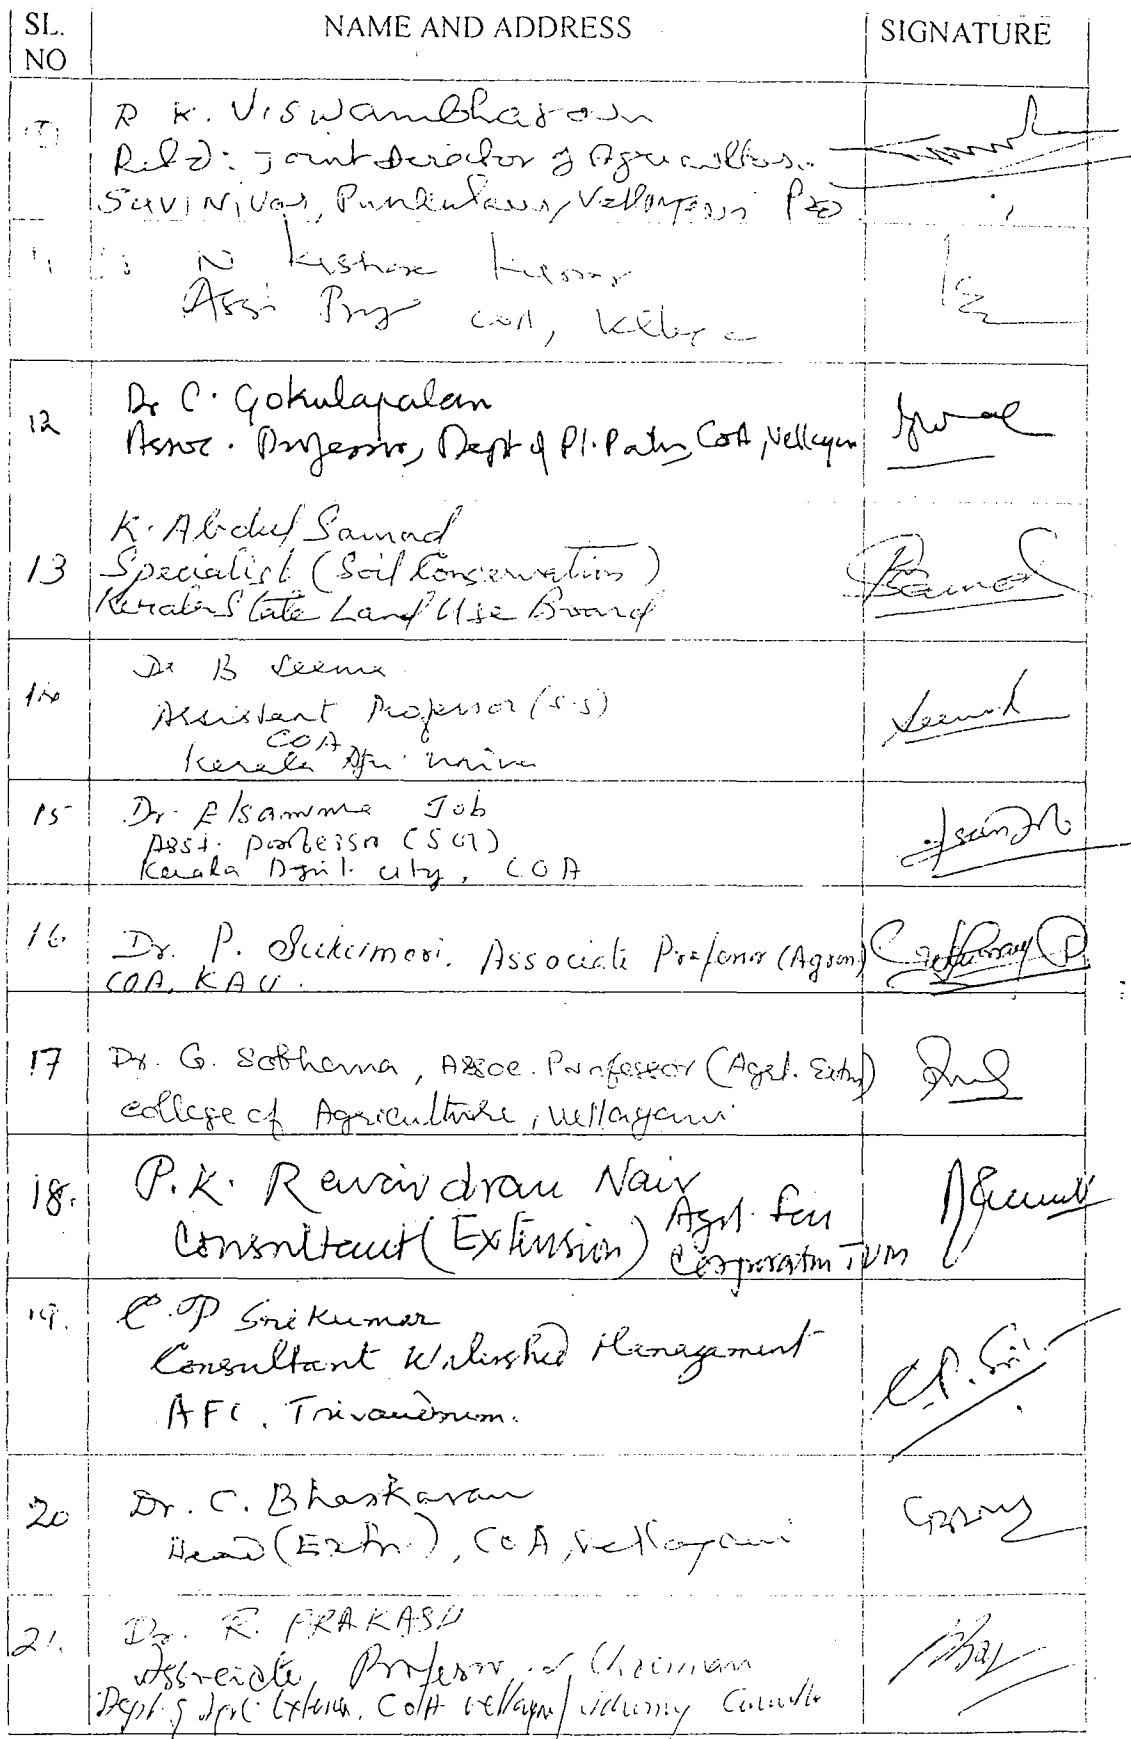 SL. NO NAME AND ADDRESS SIGNATURE
R K. Viswambharan
Retd: Joint Director of Agriculture.
Vellayani P.O
N Kishore Kumar
COA,
12 Dr C. Gokulapalan
Assoc. Professor, Dept of Pl. Path, CoA, Vellayani
13 K. Abdul Samad
Specialist (Soil Conservation)
Kerala State Land Use Board
14 Dr B Seema
Assistant Professor (S.S)
COA
Kerala Agri. Univer
15 Dr. Elsamma Job
Asst. Professor
Kerala Agril. Uty, COA
16 Dr. P. Sukumari, Associate Professor (Agron)
COA, KAU.
17 Dr. G. Sobhana, Assoc. Professor (Agrl. Extn)
College of Agriculture, Vellayani
18. P.K. Ravindran Nair
Consultant (Extension) Agrl. Fin
Corporation TVM
19. C.P Sri Kumar C.P. Sri
Consultant Watershed Management
AFC, Trivandrum.
20 Dr. C. Bhaskaran
Head (Extn.), CoA, Vellayani
21. Dr. R. PRAKASH
Associate Professor & Chairman
Dept. of Agrl Extension, CoA Vellayani